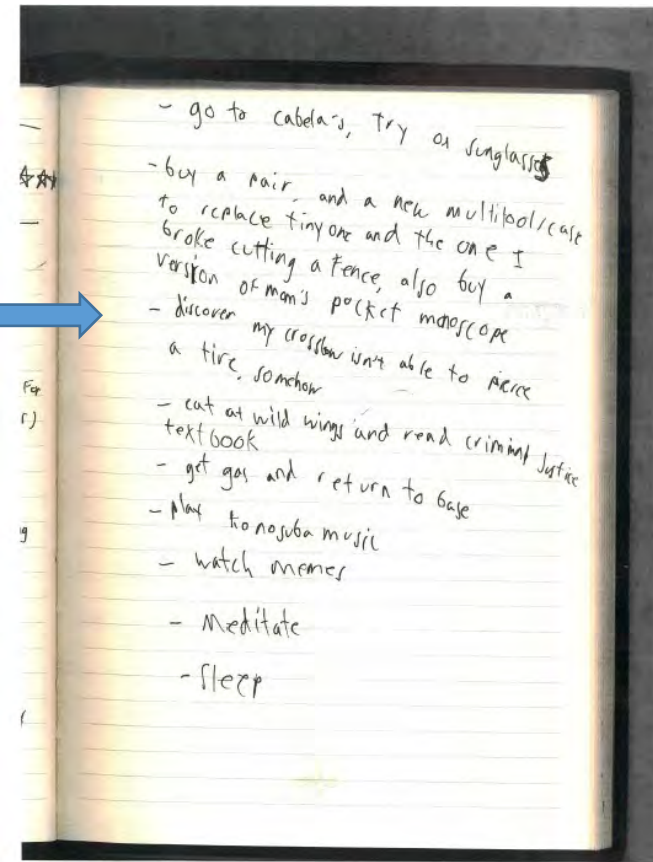 - go to cabela's, try on sunglasses
- buy a pair, and a new multitool/case
to replace tiny one and the one I
broke cutting a fence, also buy a
version of mom's pocket monoscope
- discover my crossbow isn't able to pierce
a tire, somehow
- eat at wild wings and read criminal justice
textbook
- get gas and return to base
- play konosuba music
- watch memes
- Meditate
- Sleep